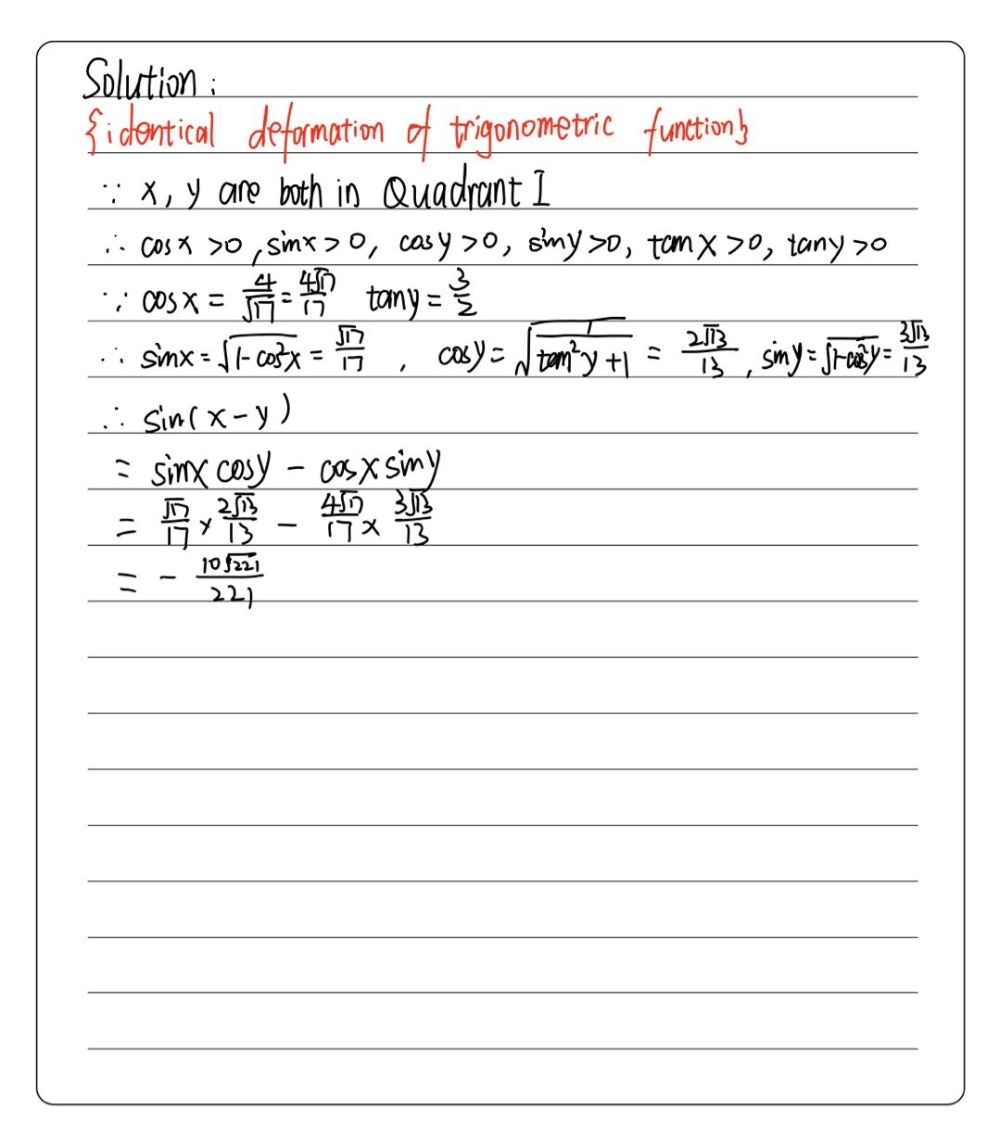 Solution:
{identical deformation of trigonometric function}
∵ x, y are both in Quadrant I
∴ cosx >0, sinx >0, cosy >0, siny >0, tanx >0, tany >0
∵ cosx = 4/√17 = 4√17/17 tany = 3/2
∴ sinx = √(1-cos²x) = √17/17, cosy = √(1/(tan²y+1)) = 2√13/13, siny = √(1-cos²y) = 3√13/13
∴ sin(x-y)
= sinx cosy - cosx siny
= √17/17 × 2√13/13 - 4√17/17 × 3√13/13
= - 10√221/221